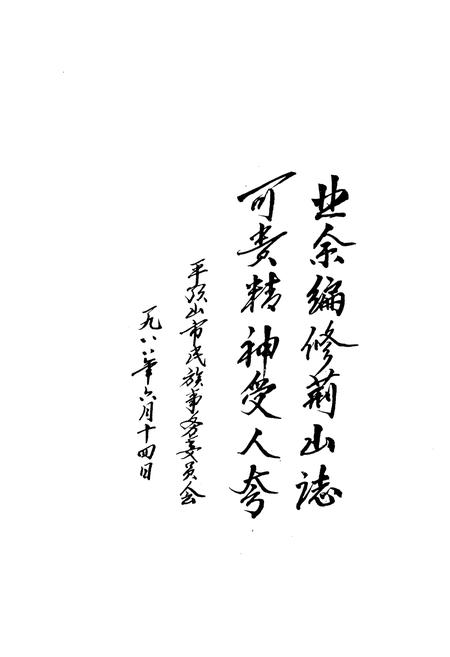 业余编修荊山誌
可贵精神受人夸
平顶山市民族事务委员会
一九八八年六月十四日